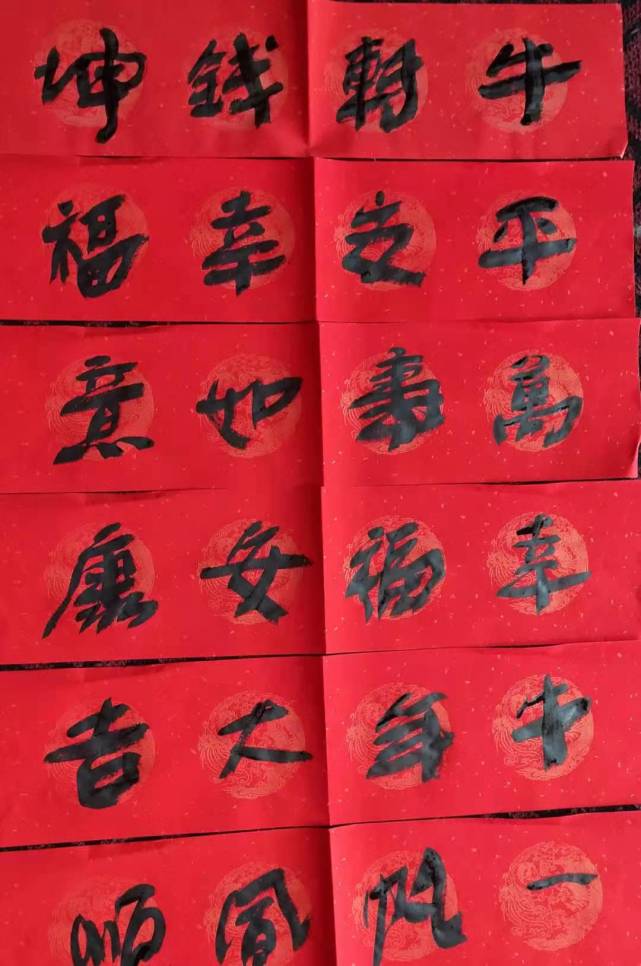 牛轉錢坤
平安幸福
萬事如意
幸福安康
牛年大吉
一帆風順